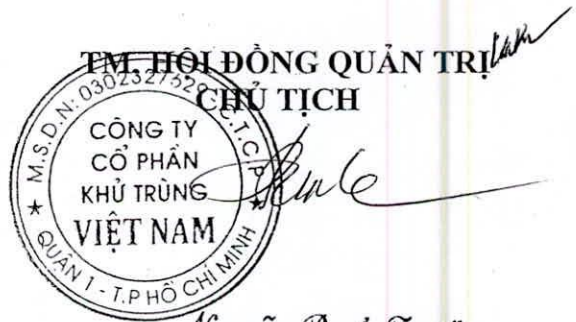 TM. HỘI ĐỒNG QUẢN TRỊ
CHỦ TỊCH
M.S.D.N: 0302327629 C.T.C.P
CÔNG TY
CỔ PHẦN
KHỬ TRÙNG
VIỆT NAM
QUẬN 1 - T.P HỒ CHÍ MINH